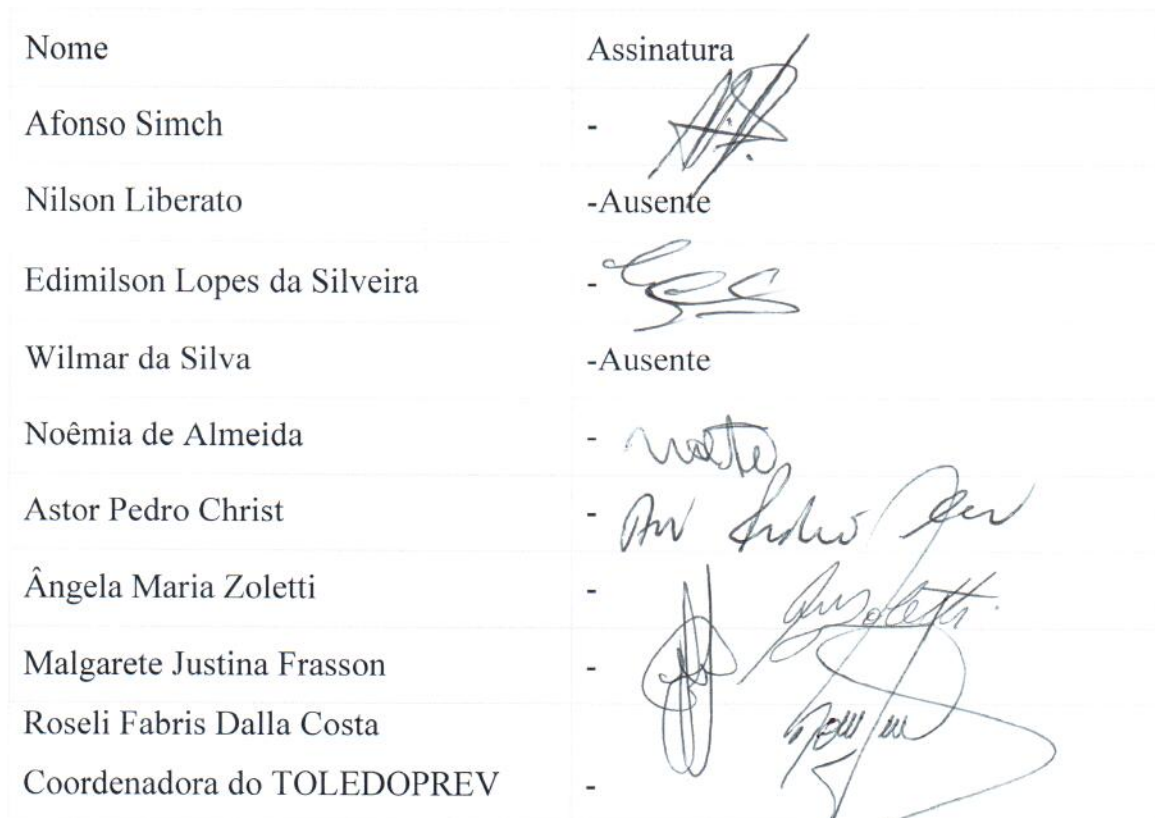 Nome Assinatura
Afonso Simch -
Nilson Liberato -Ausente
Edimilson Lopes da Silveira -
Wilmar da Silva -Ausente
Noêmia de Almeida -
Astor Pedro Christ -
Ângela Maria Zoletti -
Malgarete Justina Frasson -
Roseli Fabris Dalla Costa
Coordenadora do TOLEDOPREV -